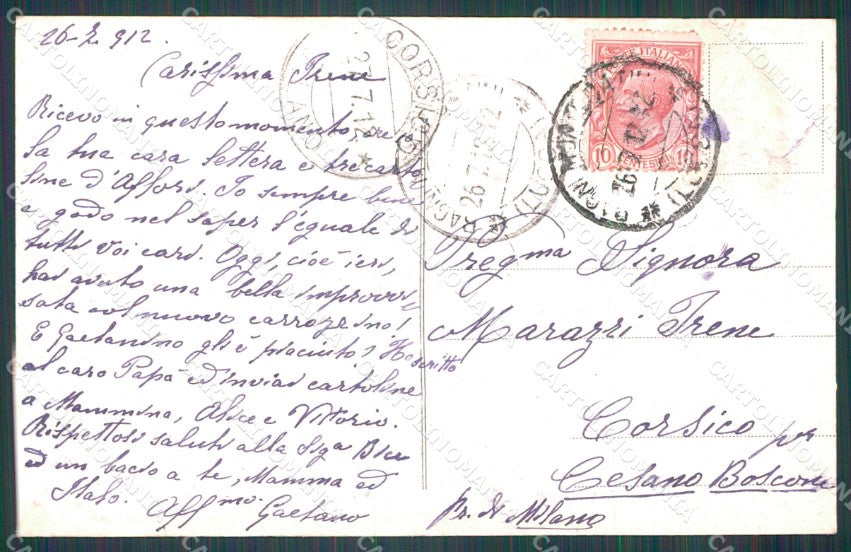 26-7-912
Carissima Irene
Ricevo in questo momento
la tua cara lettera e tre cartoline
d'Affori. Io sempre bene
e godo nel saper l'eguale di
tutti voi cari. Oggi, cioè ieri,
hai avuto una bella improvvi-
sata col nuovo carrozzino!
E Gaetanino gli è piaciuto? Ho scritto
al caro Papà ed inviai cartoline
a Mammina, Alice e Vittorio.
Rispettosi saluti alla Sig.a Bice
ed un bacio a te, Mamma ed
Italo. Aff.mo Gaetano
Preg.ma Signora
Marazzi Irene
Corsico per
Cesano Boscone
pr. di Milano
CORSICO
27.7.12
BAGNI
26.7.12
BAGNI
26.7.12
10
10